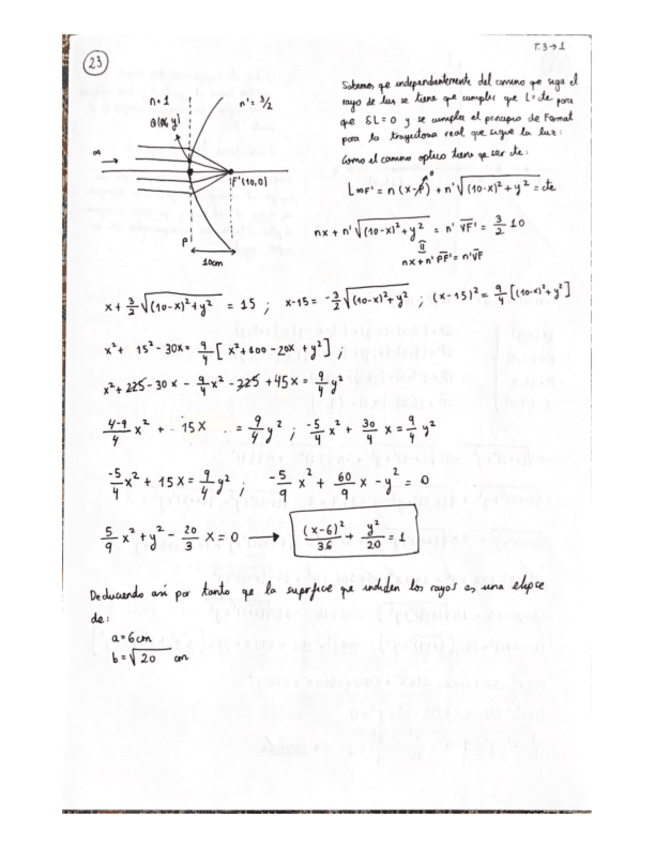 T.3→1
23
n=1
n'=3/2
Θ(x,y)
∞
F'(10,0)
P
10cm
Sabemos que independientemente del camino que siga el
rayo de luz se tiene que cumplir que L=cte para
que δL=0 y se cumpla el principio de Fermat
para la trayectoria real que sigue la luz:
Como el camino optico tiene que ser cte:
L∞F' = n(x-p)⁰ + n'√((10-x)²+y²) = cte
nx + n'√((10-x)²+y²) = n' VF' = 3/2 10
nx + n' PF' = n' VF
x + 3/2 √((10-x)²+y²) = 15 ; x-15 = -3/2 √((10-x)²+y²) ; (x-15)² = 9/4 [(10-x)²+y²]
x² + 15² - 30x = 9/4 [x²+100-20x+y²] ;
x² + 225 - 30x - 9/4 x² - 225 + 45x = 9/4 y²
4-9/4 x² + 15x = 9/4 y² ; -5/4 x² + 30/4 x = 9/4 y²
-5/4 x² + 15x = 9/4 y² ; -5/9 x² + 60/9 x - y² = 0
5/9 x² + y² - 20/3 x = 0 → (x-6)²/36 + y²/20 = 1
Deduciendo así por tanto que la superficie que inciden los rayos es una elipse
de:
a = 6cm
b = √20 cm